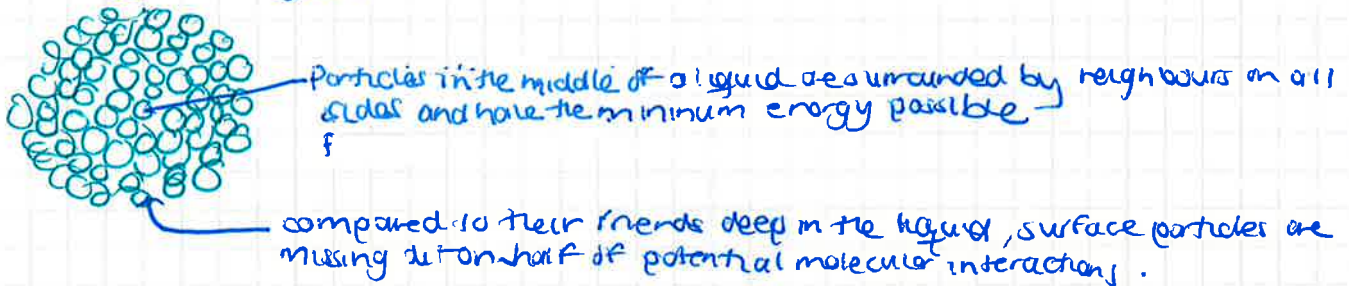 Particles in the middle of a liquid are surrounded by neighbours on all
sides and have the minimum energy possible
f
compared to their friends deep in the liquid, surface particles are
missing out on half of potential molecular interactions.